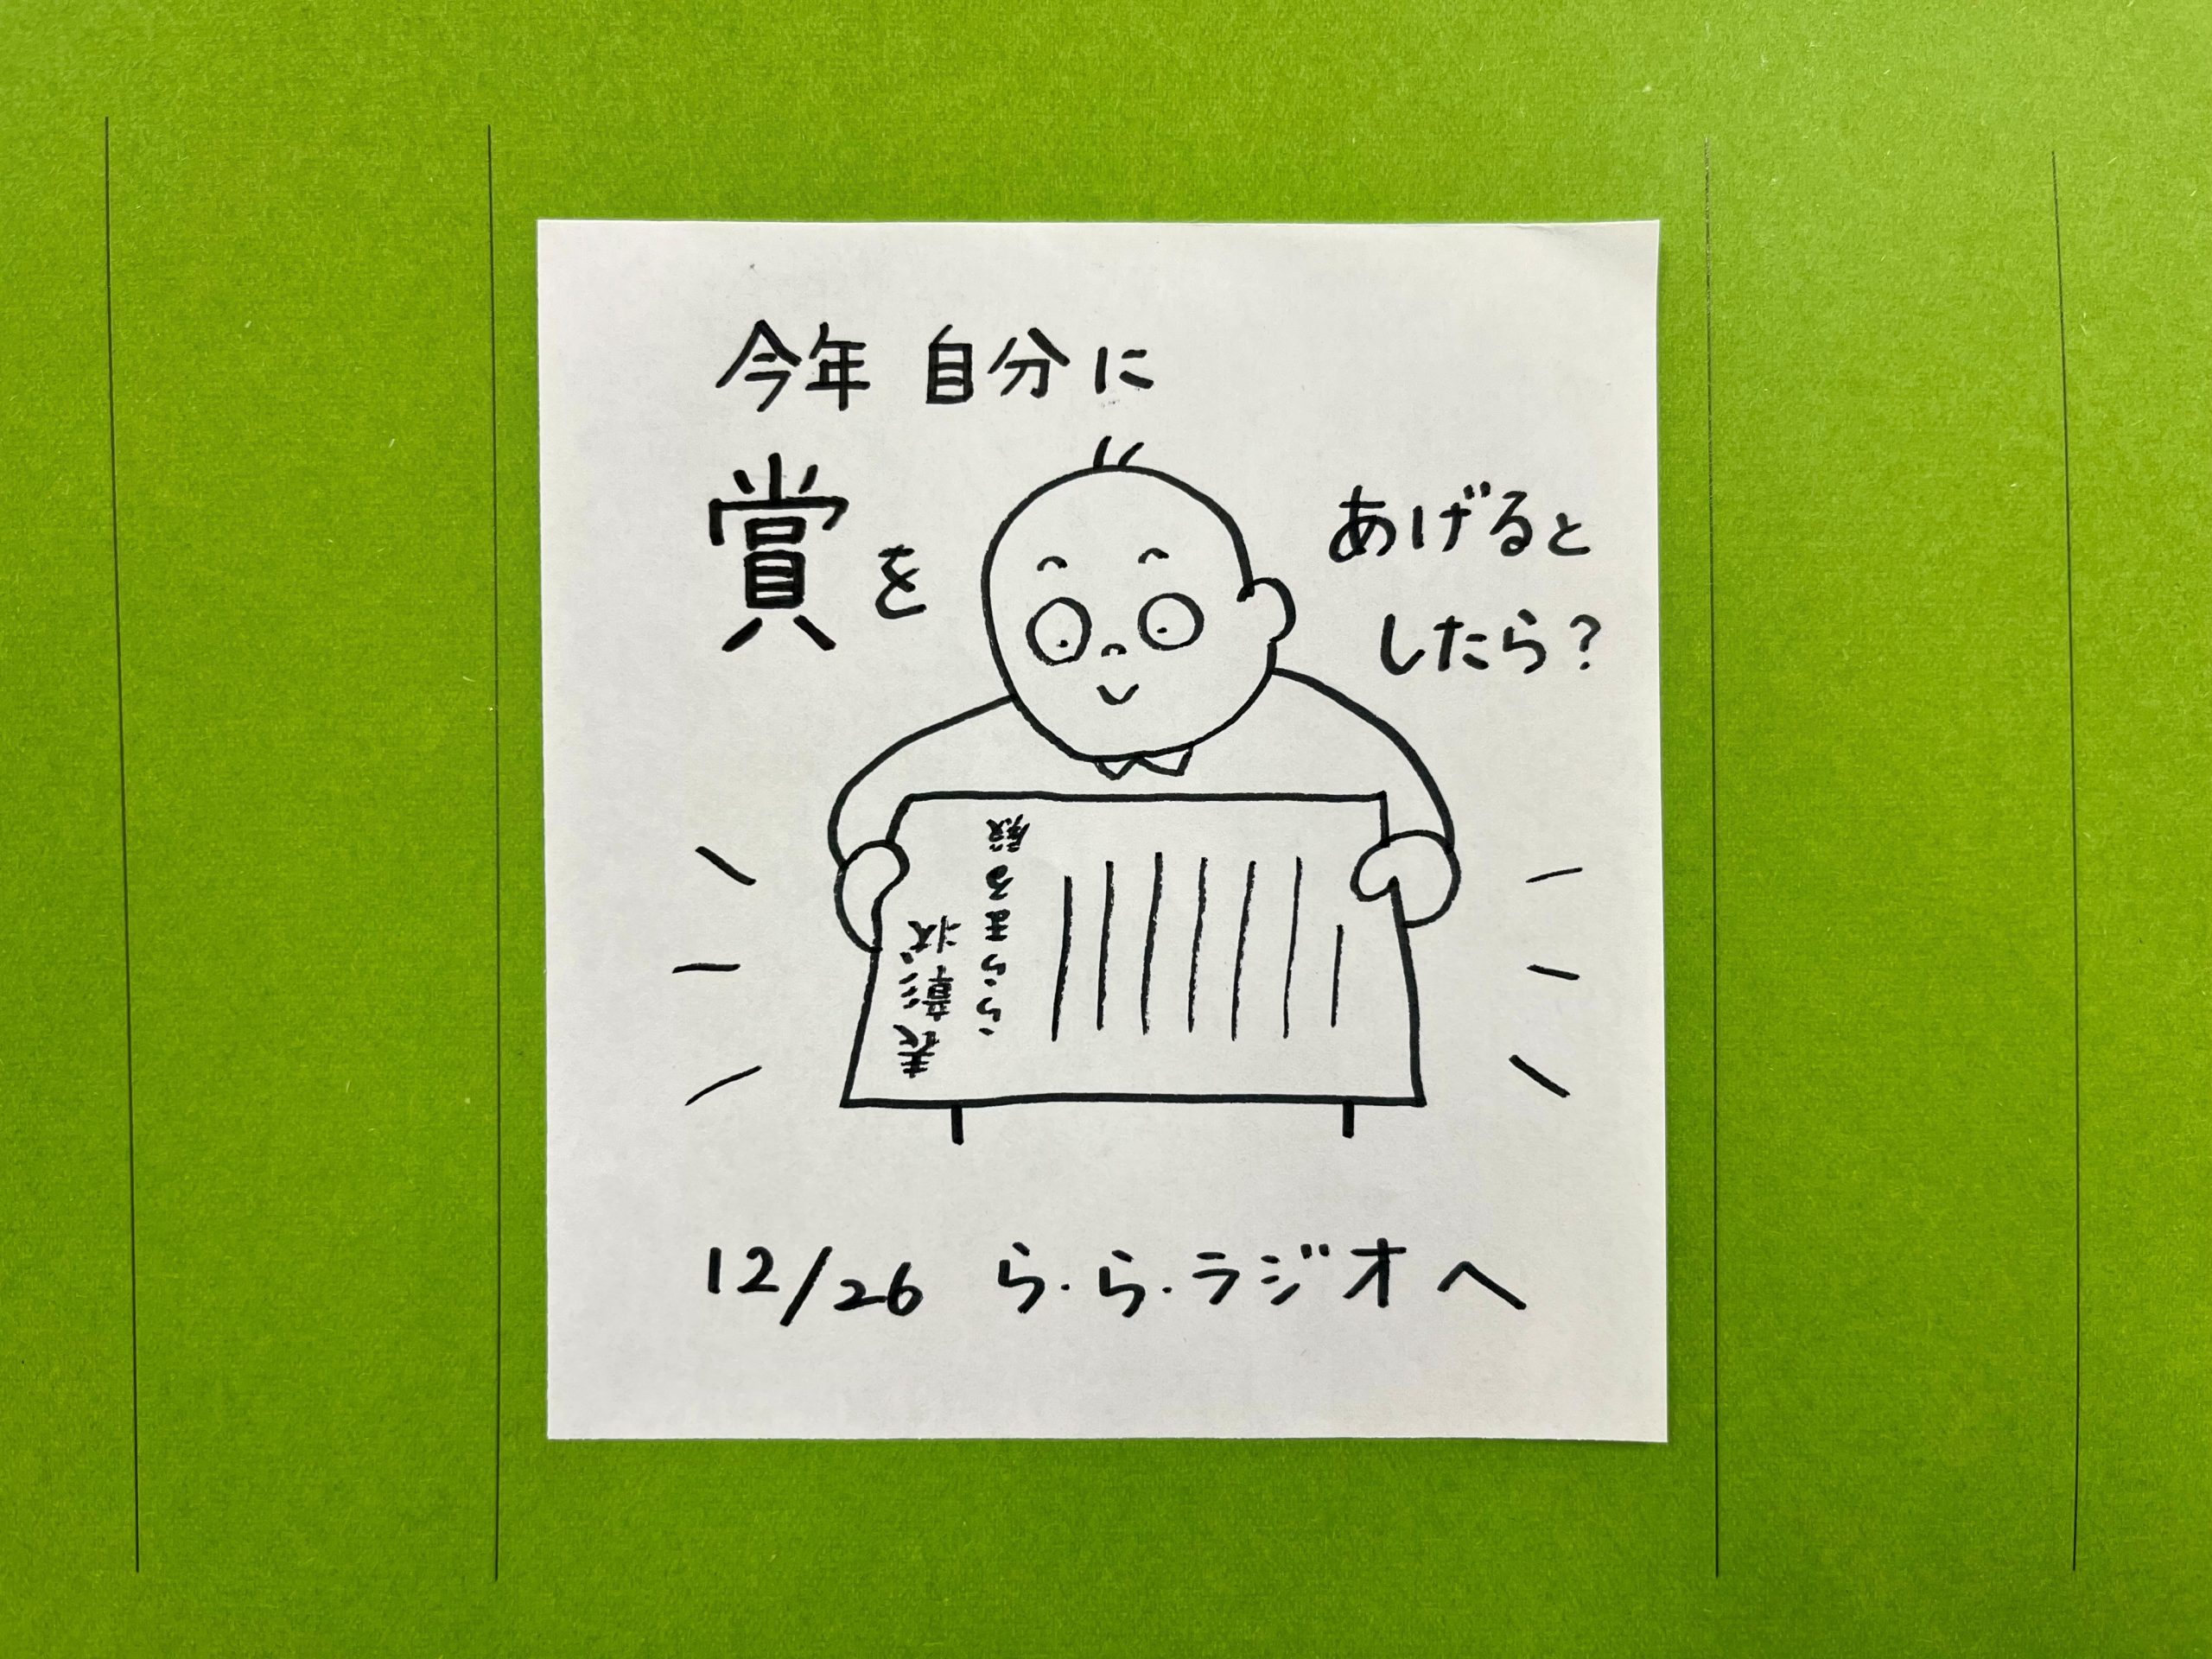 今年 自分に
賞を
あげると
したら?
表彰状
ららまる殿
12/26 ら.ら.ラジオへ